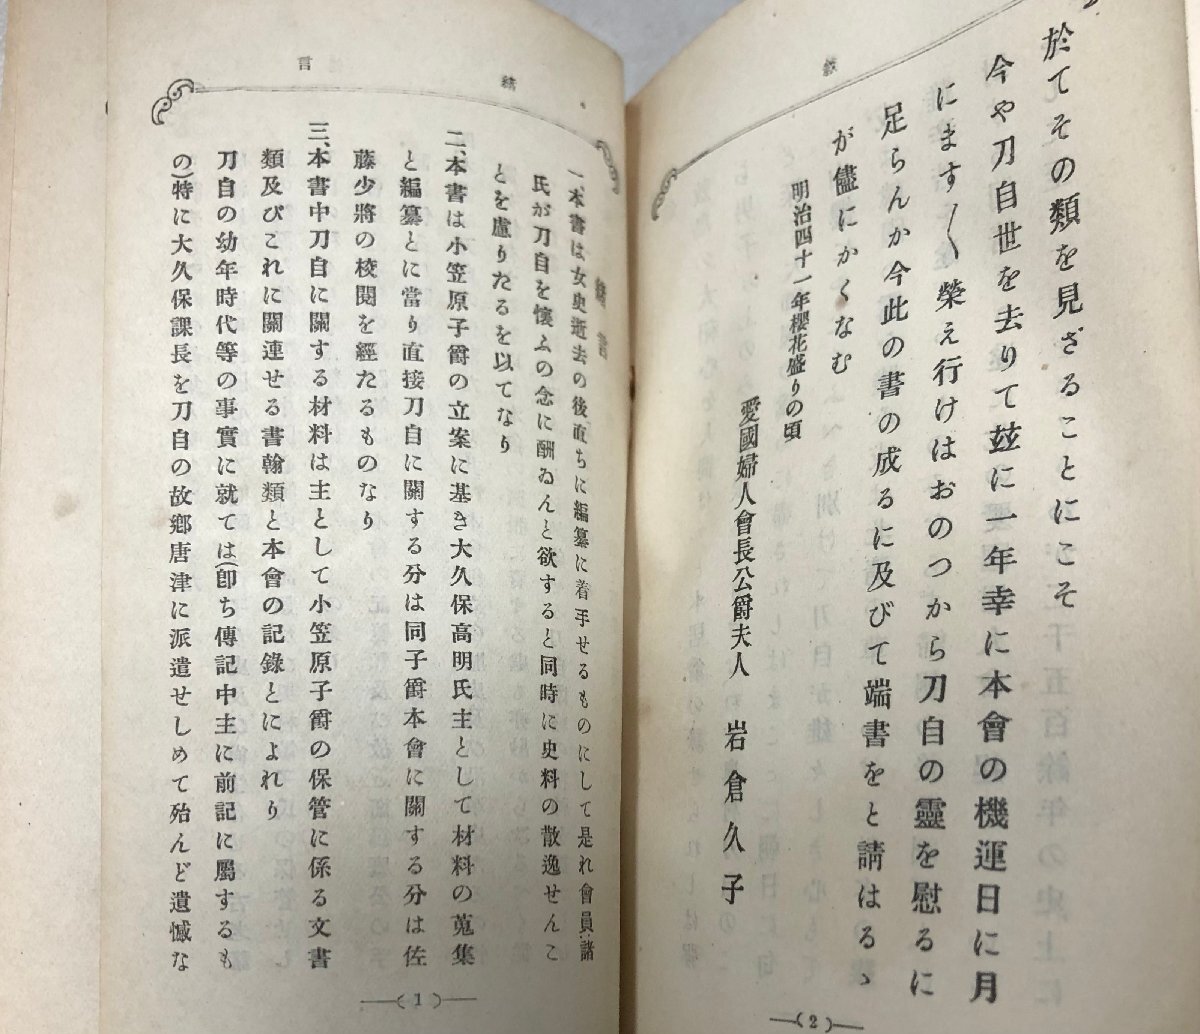 於てその類を見ざることにこそ
今や刀自世を去りて玆に一年幸に本會の機運日に月
にます〳〵榮え行けはおのつから刀自の靈を慰るに
足らんか今此の書の成るに及びて端書をと請はるゝ
が儘にかくなむ
明治四十一年櫻花盛りの頃
愛國婦人會長公爵夫人 岩倉久子
(2)
緖言
一、本書は女史逝去の後直ちに編纂に着手せるものにして是れ會員諸
氏が刀自を懷ふの念に酬ゐんと欲すると同時に史料の散逸せんこ
とを慮りたるを以てなり
二、本書は小笠原子爵の立案に基き大久保高明氏主として材料の蒐集
と編纂とに當り直接刀自に關する分は同子爵本會に關する分は佐
藤少將の校閱を經たるものなり
三、本書中刀自に關する材料は主として小笠原子爵の保管に係る文書
類及びこれに關連せる書翰類と本會の記錄とによれり
刀自の幼年時代等の事實に就ては(卽ち傳記中主に前記に屬するも
の)特に大久保課長を刀自の故鄕唐津に派遣せしめて殆んど遺憾な
(1)